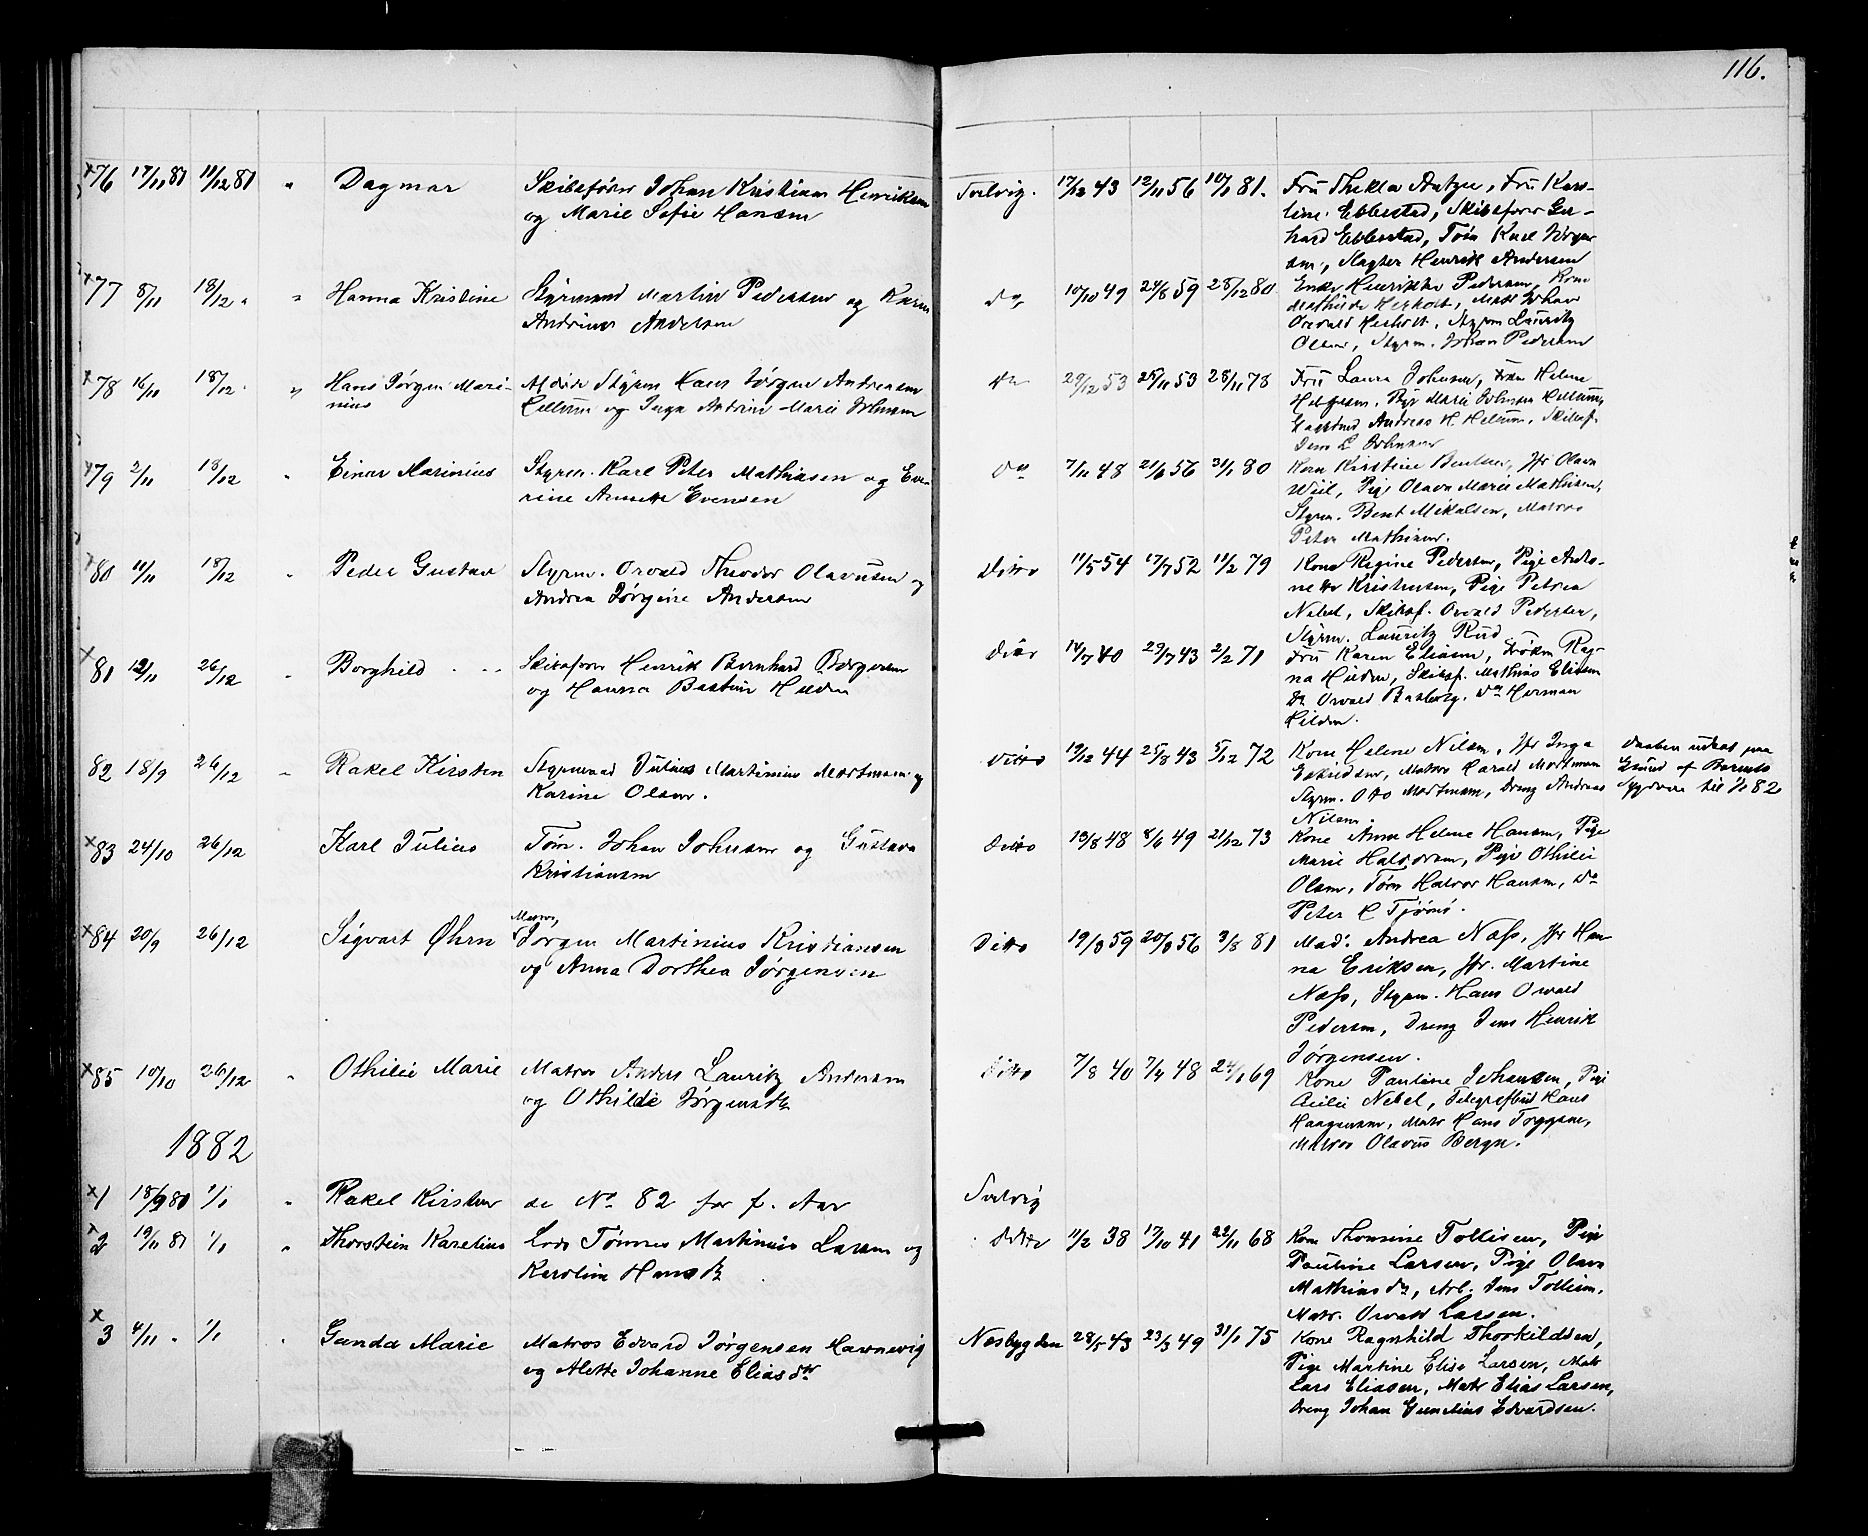 116.
76 17/11 81 11/12 81 " Dagmar Skibsfører Johan Kristian Henriksen
og Marie Sofie Hansen
Salvig. 17/12 43 12/11 56 10/1 81. Fru Thekla Fru Karo-
line Ebbestad, Skibsfører Ger-
hard Ebbestad, Tøm Karl Jørgen
sen, Slagter Henrik Andersen
77 8/11 18/12 " " Hanna Kristine Styrmand Martin Pedersen og Karen
Andrine Andersen
do 10/10 49 24/8 59 28/12 80 Enke Henrikke Pedersen, Kone
Mathilde Herholt, Matr Johan
Osvald Herholt, Styrm Lauritz
Olsen, Styrm. Johan Pedersen
78 16/11 18/12 " Hans Jørgen Mari-
nius
Styrm Hans Jørgen Andreasen
Hellum og Inga Andrine Marie Johnsen
Do 29/12 53 25/11 53 28/11 78 Fru Laura Johnsen, Helene
Helgesen, Pige Marie Johnsen Hellum,
Andreas H Hellum, Skibsf.
Jens L Johnsen
79 2/11 18/12 " Einar Marinius Styrm. Karl Peter Mathisen og Eve-
rine Annette Evensen
Do 7/11 48 21/6 56 31/1 80 Kone Kirstine Bentsen, Jfr Olava
Weil, Pige Olava Marie Mathisen,
Styrm. Bent Mikalsen, Matros
Peter Mathisen.
80 11/11 18/12 " Peder Gustav Styrm. Osvald Theodor Olavesen og
Andrea Jørgine Andersen
Ditto 11/5 54 17/7 52 11/2 79 Kone Regine Pedersen, Pige Anto-
nette Kristensen, Pige Petrea
Nebel, Skibsf. Osvald Pedersen,
Styrm. Lauritz Rud
81 12/11 26/12 " Borghild Skibsfører Henrik Bernhard Børgesen
og Hanna Bastine Hilden
Ditto 14/7 40 29/7 43 2/2 71 Fru Karen Eliasen, Frøken Rag-
na Hilden, Skibsf. Mathias Eliasen
Do Osvald Do Herman
Hilden.
82 18/9 26/12 " Rakel Kirsten Styrmand Julius Martinius Mortensen og
Karine Olsen.
Ditto 19/12 44 25/8 43 5/12 72 Kone Helene Nilsen, Jfr Inga
Eskildsen, Matros Harald Mortensen
Styrm. Otto Mortensen, Dreng Andreas
Nilsen.
Daaben udsat paa
Grund af Barnets
Sygdom til 1/1 82
83 24/10 26/12 Karl Julius Tøm. Johan Johnsen og Gustava
Kristiansen
Ditto 13/8 48 8/6 49 21/12 73 Kone Anna Helene Hansen, Pige
Marie Halvorsen, Pige Othilie
Olsen, Tøm Halvor Hansen, Do
Peter C Tjømø.
84 20/9 26/12 Sigvart Øhrn Matros,
Jørgen Martinius Kristiansen
og Anna Dorthea Jørgensen
Ditto 19/8 59 20/8 56 3/8 81 Mad. Andrea Næss, Jfr Han
na Eriksen, Jfr. Martine
Næss, Styrm. Hans Osvald
Pedersen, Dreng Jens Henrik
Jørgensen.
85 10/10 26/12 " Othilie Marie Matros Anders Lauritz Andersen
og Othilde Jørgensdtr
Ditto 7/8 40 7/4 48 24/1 69 Kone Pauline Johansen, Pige
Cecilie Nebel, Telegrafbud Hans
Haagensen, Matr Hans Tryggsen,
Matros Olavus Berge.
1882
1 18/9 81 1/1 " Rakel Kirsten se No 82 for f. Aar Salvig
2 19/11 81 1/1 " Thorstein Karelius Lods Tønnes Martinius Larsen og
Karoline Hansdtr
Ditto 11/2 38 17/10 41 22/11 68 Kone Thomine Tollisen, Pige
Pauline Larsen, Pige Olava
Mathiasdtr, Arb. Jens Tollisen,
Matr. Osvald Larsen.
3 4/11 " 1/1 " Gunda Marie Matros Edvard Jørgensen Havnevig
og Alette Johanne Eliasdtr
Næsbygden 28/5 43 23/3 49 31/1 75 Kone Ragnhild Thorkildsen,
Pige Martine Elise Larsen, Matr
Lars Eliasen, Matr Elias Larsen,
Dreng Johan Gunelius Edvardsen.